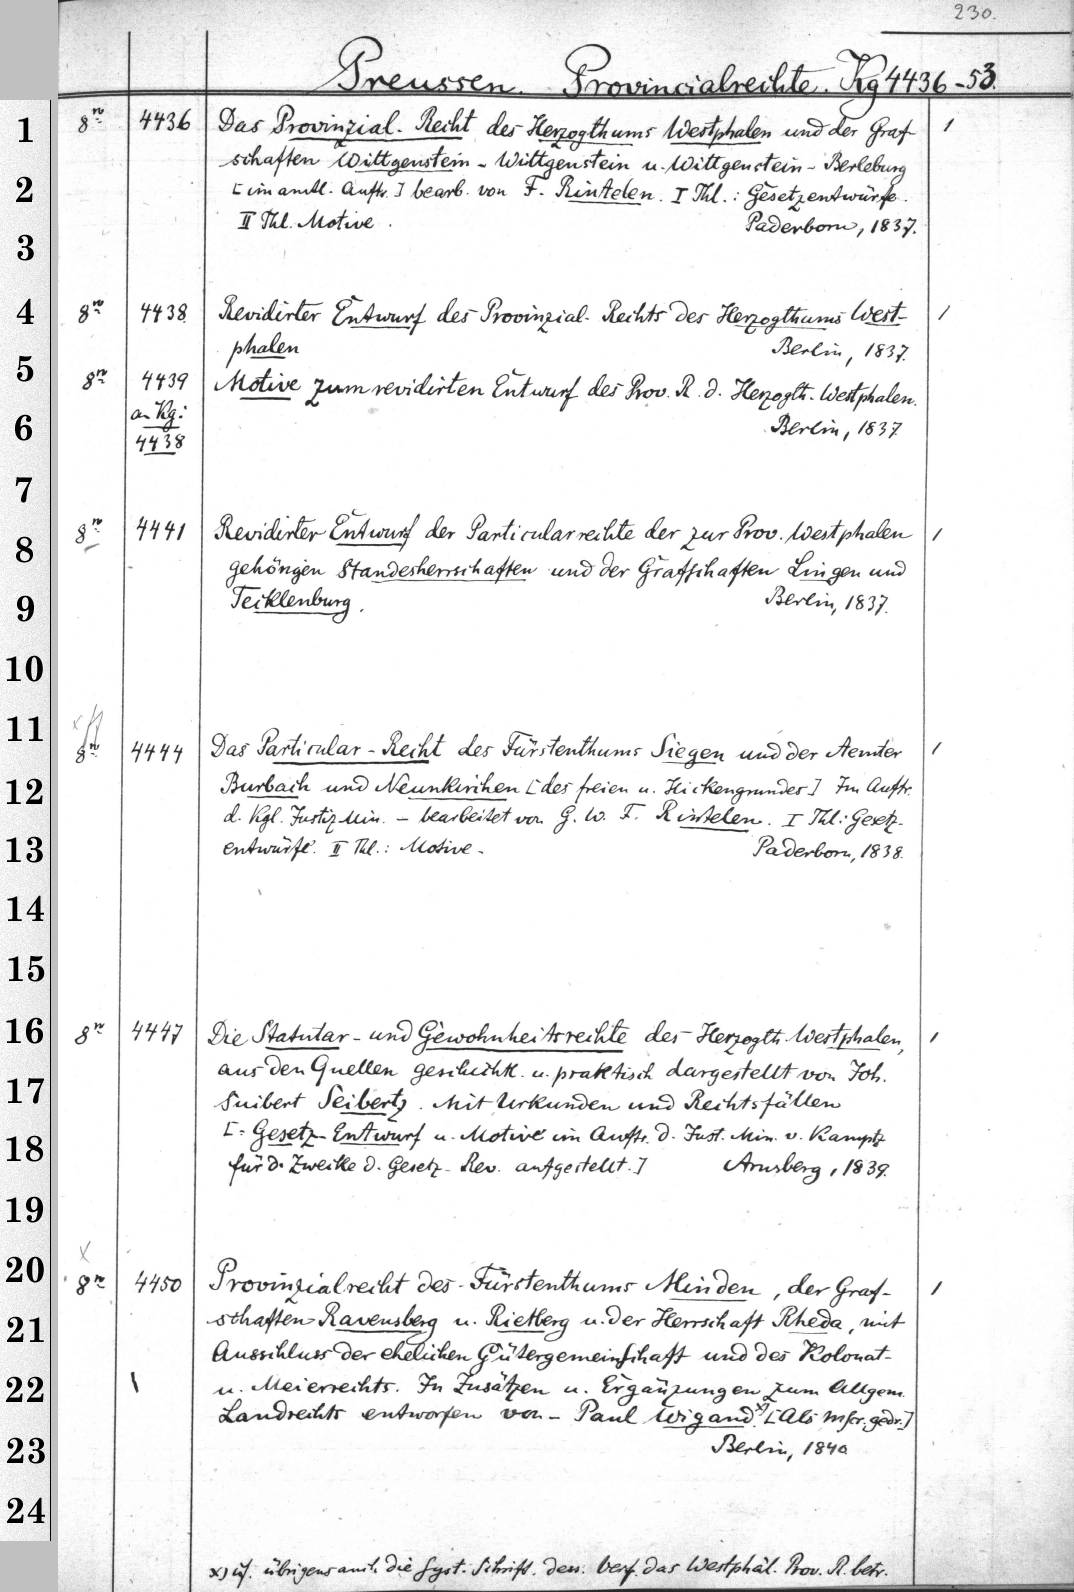 230.
Preussen. Provincialrechte. Kg 4436-53.
1
8n 4436 Das Provinzial-Recht des Herzogthums Westphalen und der Graf- 1
schaften Wittgenstein-Wittgenstein u. Wittgenstein-Berleburg
2
[im amtl. Auftr.] bearb. von F. Rintelen. I Thl.: Gesetzentwürfe.
II Thl. Motive. Paderborn, 1837.
3
4
8n 4438 Revidirter Entwurf des Provinzial-Rechts des Herzogthums West- 1
phalen Berlin, 1837.
5
8n 4439 Motive zum revidirten Entwurf des Prov. R. d. Herzogth. Westphalen.
an Kg:
6
4438 Berlin, 1837
7
8
8n 4441 Revidirter Entwurf der Particularrechte der zur Prov. Westphalen 1
gehörigen Standesherrschaften und der Grafschaften Lingen und
9
Tecklenburg. Berlin, 1837.
10
11
8n 4444 Das Particular-Recht des Fürstenthums Siegen und der Aemter 1
12
Burbach und Neunkirchen [des freien u. Hickengrundes] Im Auftr.
d. Kgl. Justiz Min. - bearbeitet von G. W. F. Rintelen. I Thl: Gesetz-
13
entwürfe. II Thl.: Motive. Paderborn, 1838.
14
15
16
8n 4447 Die Statutar- und Gewohnheitsrechte des Herzogth. Westphalen, 1
aus den Quellen geschichtl. u. praktisch dargestellt von Joh.
17
Suibert Seibertz. Mit Urkunden und Rechtsfällen
18
[= Gesetz-Entwurf u. Motive im Auftr. d. Just. Min. v. Kamptz
für d. Zwecke d. Gesetz-Rev. aufgestellt.] Arnsberg, 1839.
19
x
20
8n 4450 Provinzialrecht des Fürstenthums Minden, der Graf- 1
21
schaften Ravensberg u. Rietberg u. der Herrschaft Rheda, mit
Ausschluss der ehelichen Gütergemeinschaft und des Kolonat-
22
u. Meierrechts. In Zusätzen u. Ergänzungen zum Allgem.
Landrechts entworfen von - Paul Wigand x) [Als Mscr. gedr.]
23
Berlin, 1840
24
x) übrigens auch die Syst. Schrift. dess. Verf. das Westphäl. Prov. R. betr.